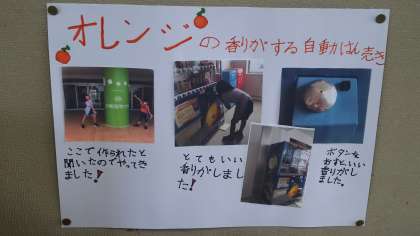 オレンジの香りがする自動はん売き
ここで作られたと
聞いたのでやってき
ました!
とてもいい
香りがしまし
た!
ボタンを
おすと、いい
香りが
しました。